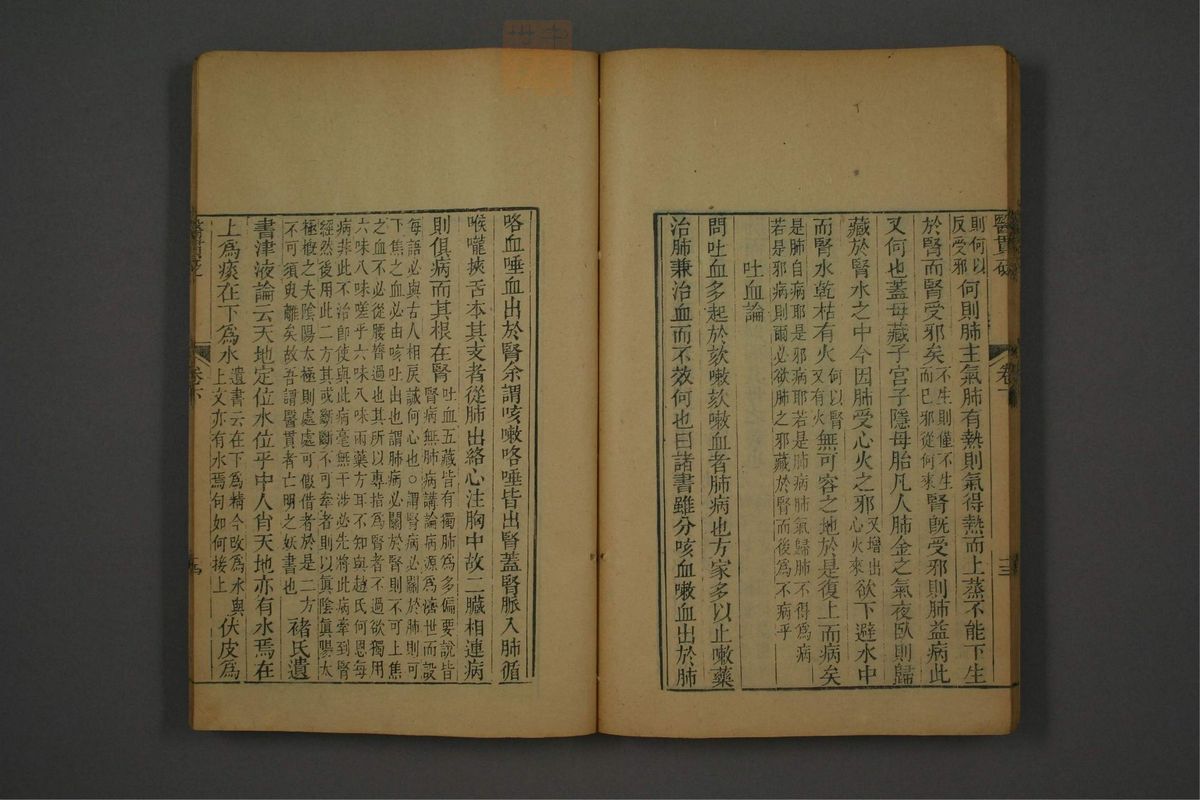 醫貫砭
卷下
則何以反受邪何則肺主氣肺有熱則氣得熱而上蒸不能下生
於腎而腎受邪矣不生則僅不生而已邪從何來腎旣受邪則肺益病此
又何也蓋母藏子宮子隱母胎凡人肺金之氣夜臥則歸
藏於腎水之中今因肺受心火之邪又增出心火來欲下避水中
而腎水乾枯有火何以腎又有火無可容之地於是復上而病矣
是肺自病耶是邪病耶若是肺病肺氣歸肺不得爲病
若是邪病則爾必欲肺之邪藏於腎而後爲不病乎
吐血論
問吐血多起於欬嗽欬嗽血者肺病也方家多以止嗽藥
治肺兼治血而不效何也曰諸書雖分咳血嗽血出於肺
咯血唾血出於腎余謂咳嗽咯唾皆出腎蓋腎脈入肺循
喉嚨挾舌本其支者從肺出絡心注胸中故二臟相連病
則俱病而其根在腎吐血五藏皆有獨肺爲多偏要說皆腎病無肺病講論病源爲濟世而設
每語必與古人相戾誠何心也○謂腎病必關於肺則可
下焦之血必由咳吐出也謂肺病必關於腎則不可上焦
之血不必從腰膂過也其所以專指爲腎者不過欲獨用
六味八味嗟乎六味八味兩藥方耳不知與趙氏何恩每
病非此不治卽使與此病毫無干涉必先將此病牽到腎
經然後用此二方其或斷斷不可牽者則以眞陰眞陽太
極槪之夫陰陽太極則處處可假借者於是二方
不可須臾離矣故吾謂醫貫者亡明之妖書也褚氏遺
書津液論云天地定位水位乎中人肖天地亦有水焉在
上爲痰在下爲水遺書云在下爲精今改爲水與上文亦有水焉句如何接上伏皮爲
卷下